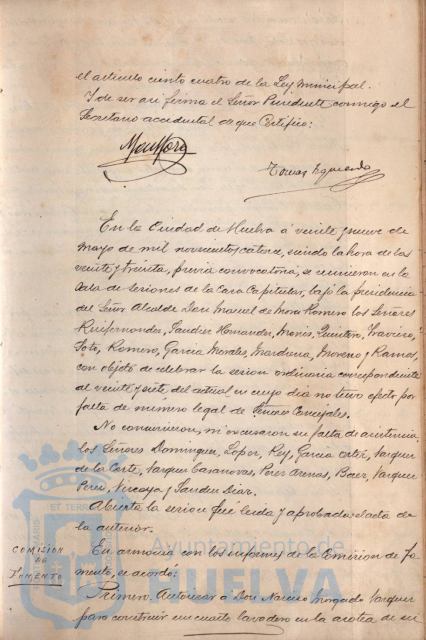 el artículo ciento cuatro de la Ley Municipal.
Y de ser así firma el Señor Presidente conmigo el
Secretario accidental de que Certifico:
Tomas Izquierdo
En la Ciudad de Huelva á veinte y nueve de
Mayo de mil novecientos catorce, siendo la hora de las
veinte y treinta, previa convocatoria, se reunieron en la
Sala de Sesiones de la Casa Capitular, bajo la presidencia
del Señor Alcalde Don Manuel de Mora Romero los Señores
Ruifernandez, Sanchez Hernandez, Monis, Quintero, Traviero,
Soto, Romero, Garcia Morales, Marchena, Moreno y Ramos,
con objeto de celebrar la sesion ordinaria correspondiente
al veinte y siete del actual en cuyo dia no tuvo efecto por
falta de número legal de Señores Concejales.
No concurrieron, ni excusaron su falta de asistencia
los Señores Dominguez, Lopez, Rey, Garcia Ortiz, Vazquez
de la Corte, Vazquez Casanovas, Perez Arenas, Baez, Vazquez
Perez, Vizcaya y Sanchez Diaz.
Abierta la sesion fue leida y aprobada el acta de
la anterior.
COMISION
DE
FOMENTO
En armonia con los informes de la Comision de Fo-
mento, se acordó:
Primero. Autorizar á Don Narciso Morgado Vazquez
para construir un cuarto lavadero en la azotea de su
Ayuntamiento de
HUELVA